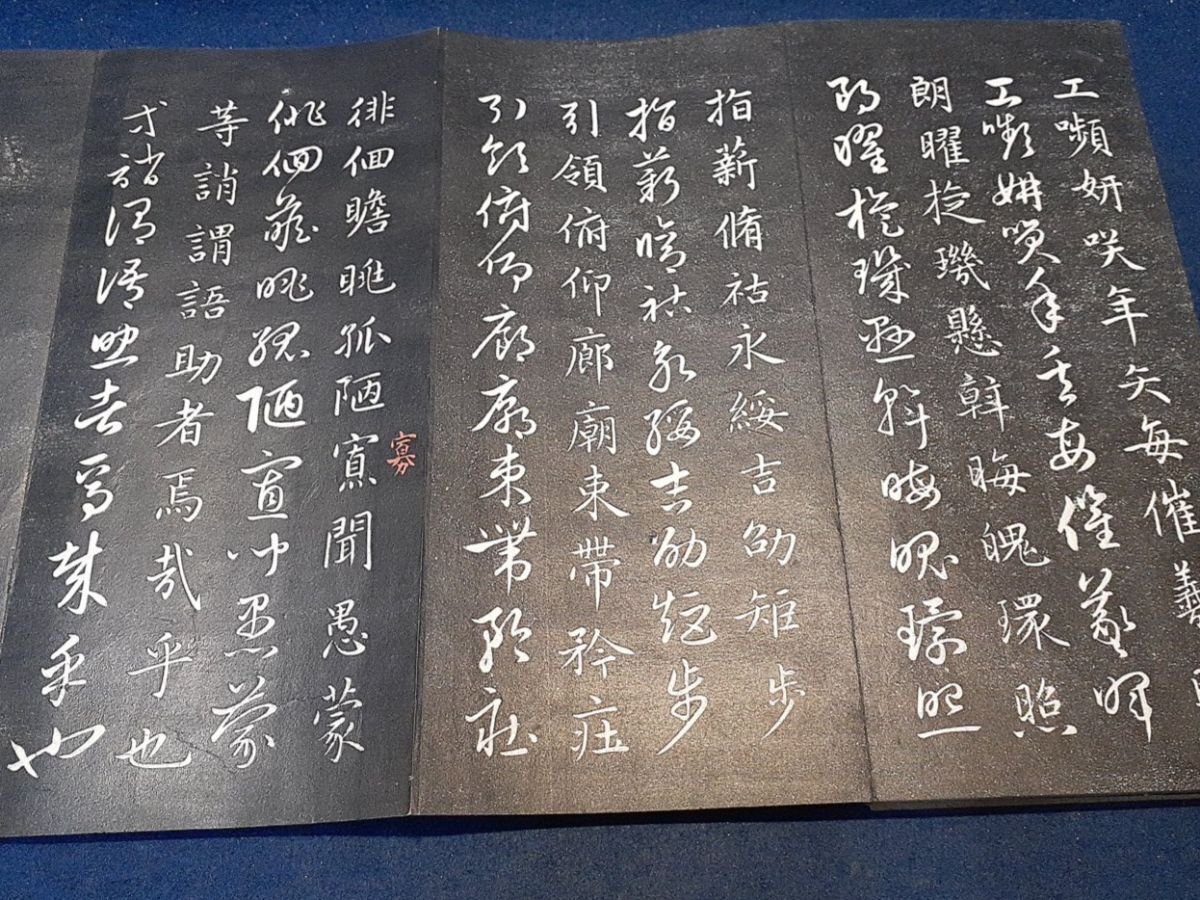 工嚬妍咲年矢每催羲
工嚬妍咲年矢每催羲暉
朗曜琁璣懸斡晦魄環照
朗曜琁璣懸斡晦魄環照
指薪脩祜永綏吉劭矩步
指薪脩祜永綏吉劭矩步
引領俯仰廊廟束帶矜莊
引領俯仰廊廟束帶矜莊
寡
徘佪瞻眺孤陋寡聞愚蒙
徘佪瞻眺孤陋寡聞愚蒙
等誚謂語助者焉哉乎也
等誚謂語助者焉哉乎也